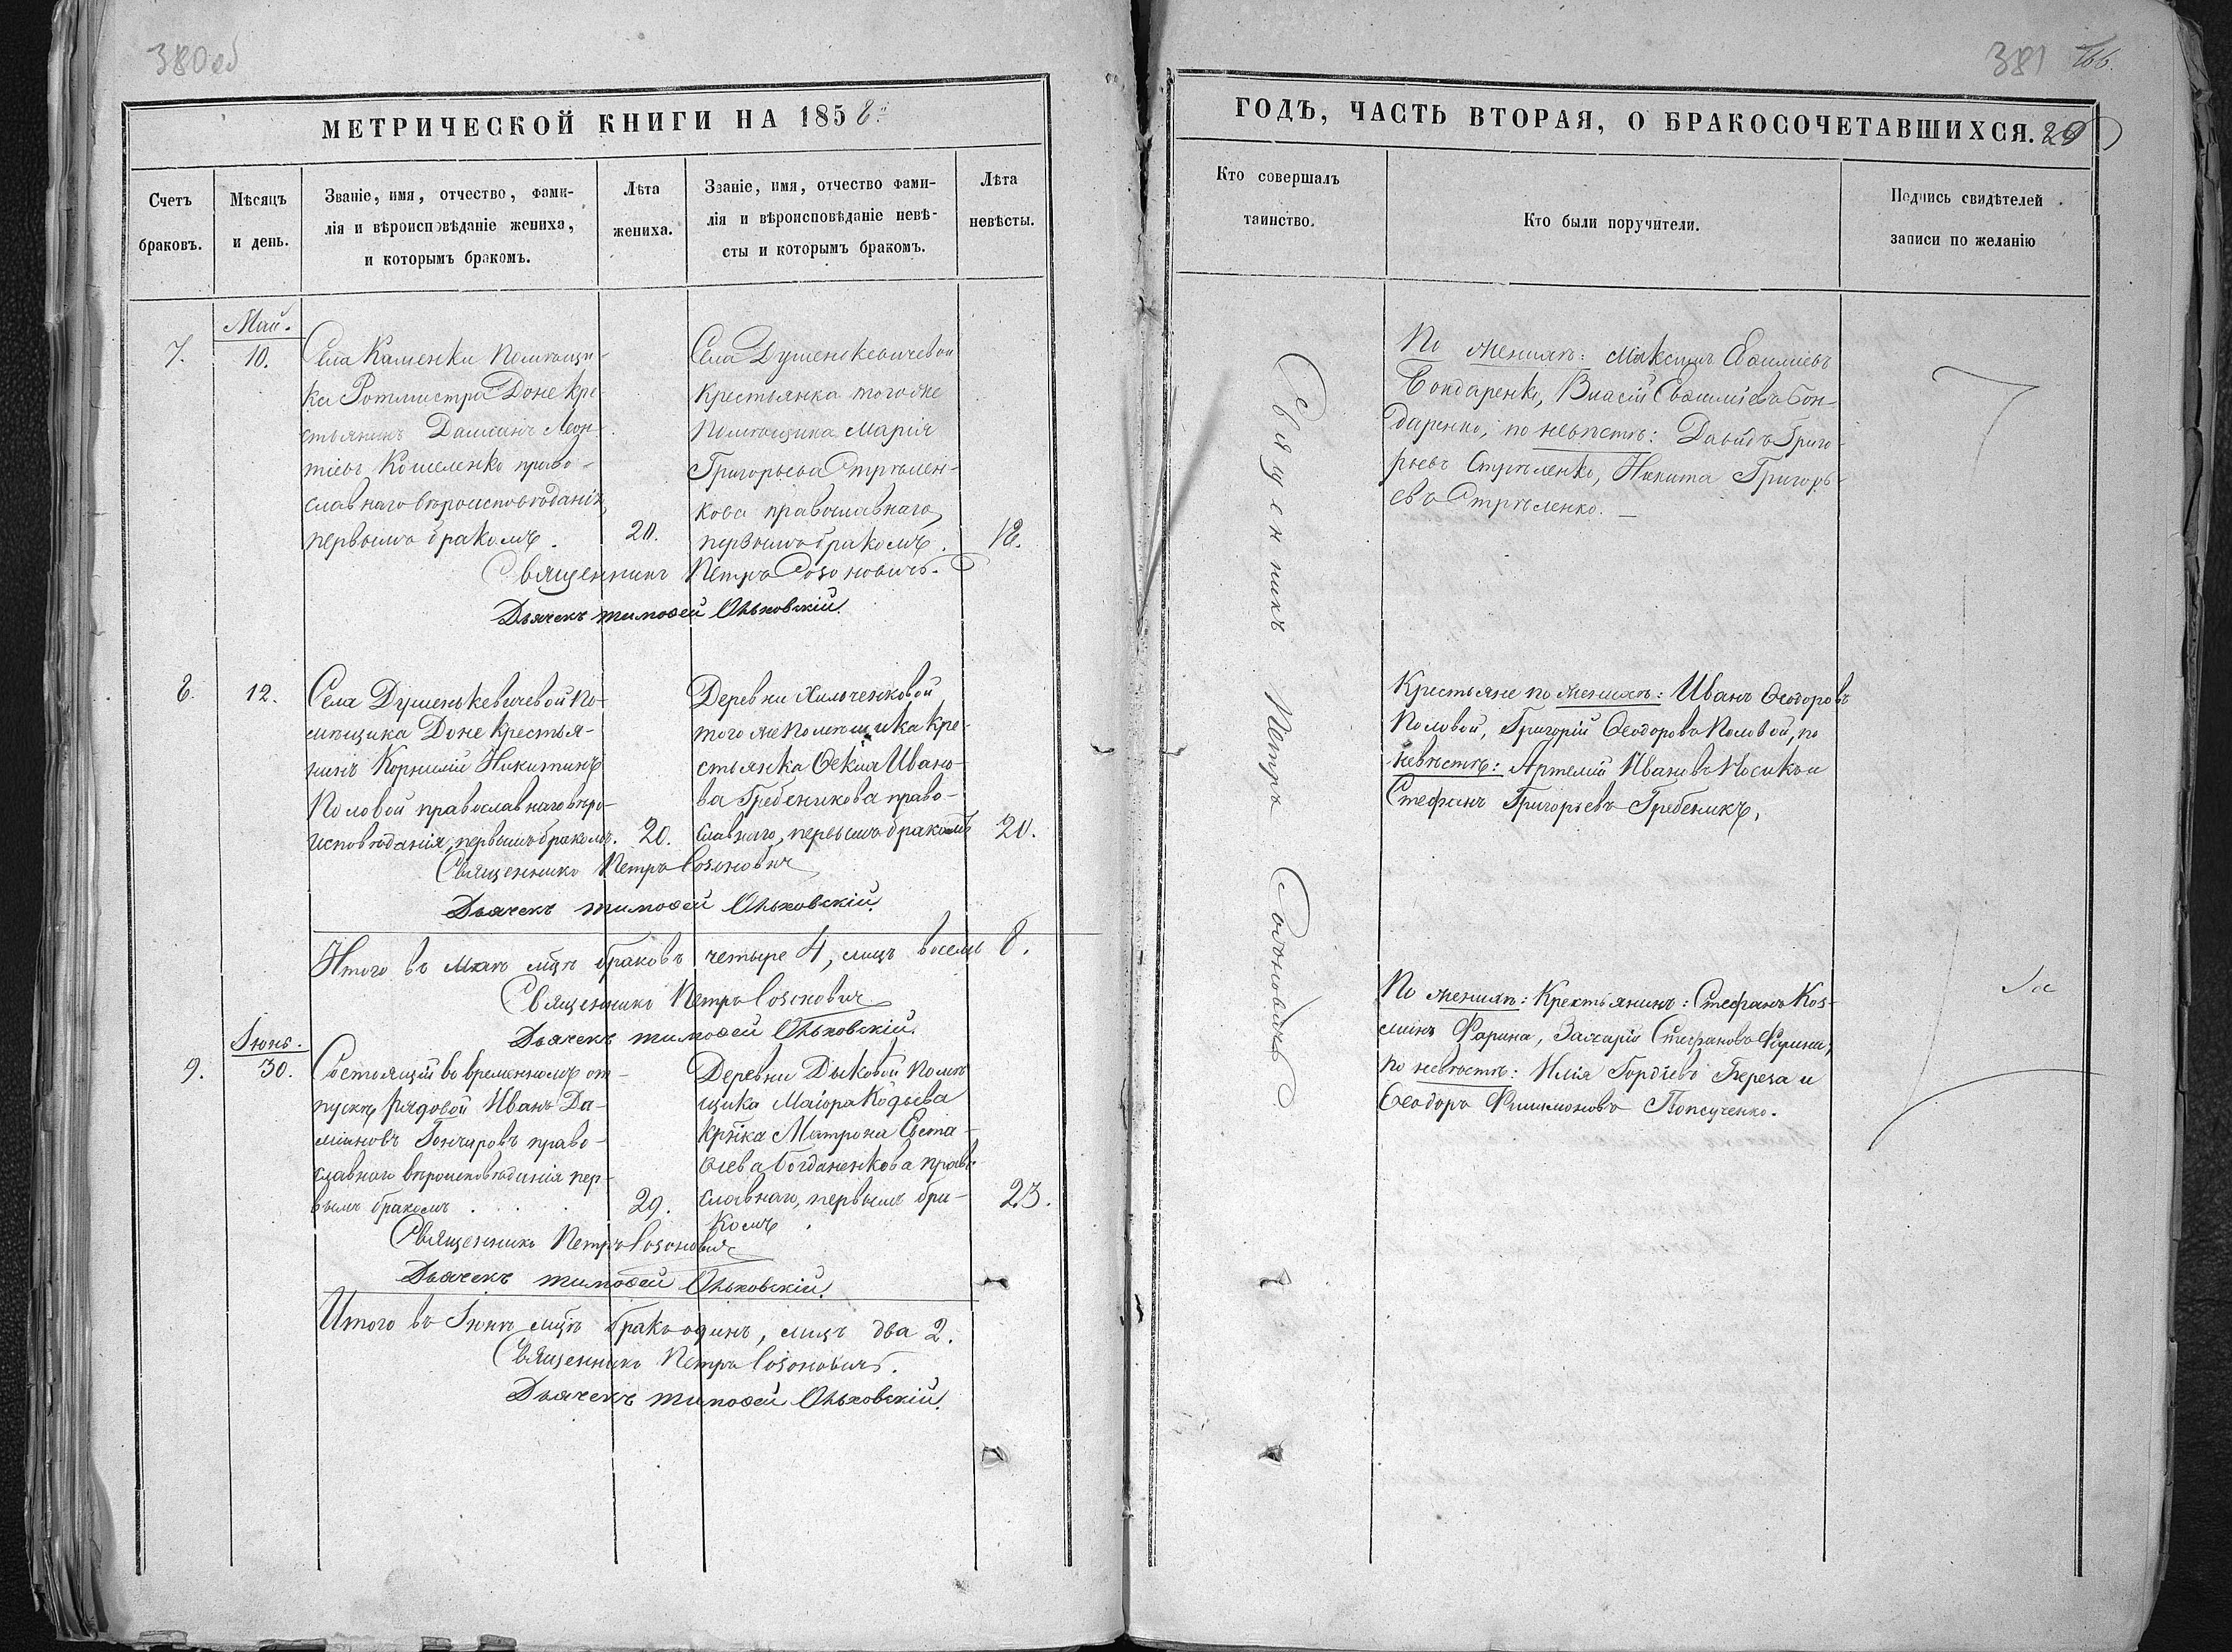 380 об
МЕТРИЧЕСКОЙ КНИГИ НА 1858й
Счетъ
браковъ.
Мѣсяцъ
и день.
Званіе, имя, отчество, фами-
лія и вѣроисповѣданіе жениха,
и которымъ бракомъ.
Лѣта
жениха.
Званіе, имя, отчество фами-
лія и вѣроисповѣданіе невѣ-
сты и которымъ бракомъ.
Лѣта
невѣсты.
Май.
7.
10.
Села Каменки помѣщи-
ка Ротмистра Доне кре-
стьянинъ Даміанъ Леон-
тіевъ Кошеленко право-
славнаго вѣроисповѣданія,
первымъ бракомъ.
20.
Села Душенькевичевой
крестьянка того же
помѣщика Марія
Григорьева Стрѣлен-
кова православнаго,
первымъ бракомъ.
18.
Священникъ Петръ Созоновичъ.
Дьячекъ Тимоѳей Ольховскій.
8.
12.
Села Душенькевичевой по-
мѣщика Доне крестья-
нинъ Корнилій Никитинъ
Половой православнаго вѣро-
исповѣданія, первымъ бракомъ.
20.
Деревни Хильченковой
того же помѣщика кре-
стьянка Ѳекла Ивано-
ва Гребеникова право-
славнаго, первымъ бракомъ
20.
Священникъ Петръ Созоновичъ
Дьячекъ Тимоѳей Ольховскій.
Итого въ Маѣ мцѣ браковъ четыре 4, лицъ восемь 8.
Священникъ Петръ Созоновичъ
Дьячекъ Тимоѳей Ольховскій.
Іюнь.
9.
30.
Состоящій во временномъ от-
пускѣ рядовой Иванъ Да-
міановъ Гончаровъ право-
славнаго вѣроисповѣданія пер-
вымъ бракомъ
29.
Деревни Дыковой помѣ-
щика Маіора Кодьева
кртка Матрона Евста-
ѳіева Богданенкова право-
славнаго, первымъ бра-
комъ.
23.
Священникъ Петръ Созоновичъ
Дьячекъ Тимоѳей Ольховскій.
Итого въ Іюнѣ мцѣ бракъ одинъ, лицъ два 2.
Священникъ Петръ Созоновичъ.
Дьячекъ Тимоѳей Ольховскій.
381
ГОДЪ, ЧАСТЬ ВТОРАЯ, О БРАКОСОЧЕТАВШИХСЯ.
Кто совершалъ
таинство.
Кто были поручители.
Подпись свидѣтелей
записи по желанію
Священникъ Петръ Созоновичъ
По женихѣ: Максимъ Евѳиміевъ
Бондаренко, Власій Евѳиміевъ Бон-
даренко, по невѣстѣ: Давидъ Григо-
рьевъ Стрѣленко, Никита Григорь-
евъ Стрѣленко.
Крестьяне по женихѣ: Иванъ Ѳеодоровъ
Половой, Григорій Ѳеодоровъ Половой, по
невѣстѣ: Артемій Ивановъ Носикъ и
Стефанъ Григорьевъ Гребеникъ,
По женихѣ: Крестьянинъ: Стефанъ Коз-
минъ Фарина, Захарій Стефановъ Фарина,
по невѣстѣ: Илія Гордіевъ Береза и
Ѳеодоръ Филимоновъ Попсученко.